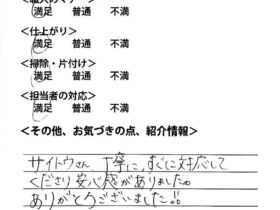 満足 普通 不満
<仕上がり>
満足 普通 不満
<掃除・片付け>
満足 普通 不満
<担当者の対応>
満足 普通 不満
<その他、お気づきの点、紹介情報>
サイトウさん 丁寧に、すぐに対応して
くださり安心感がありました。
ありがとうございました!!